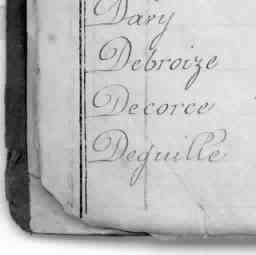 Davy
Debroize
Decorce
Deguille